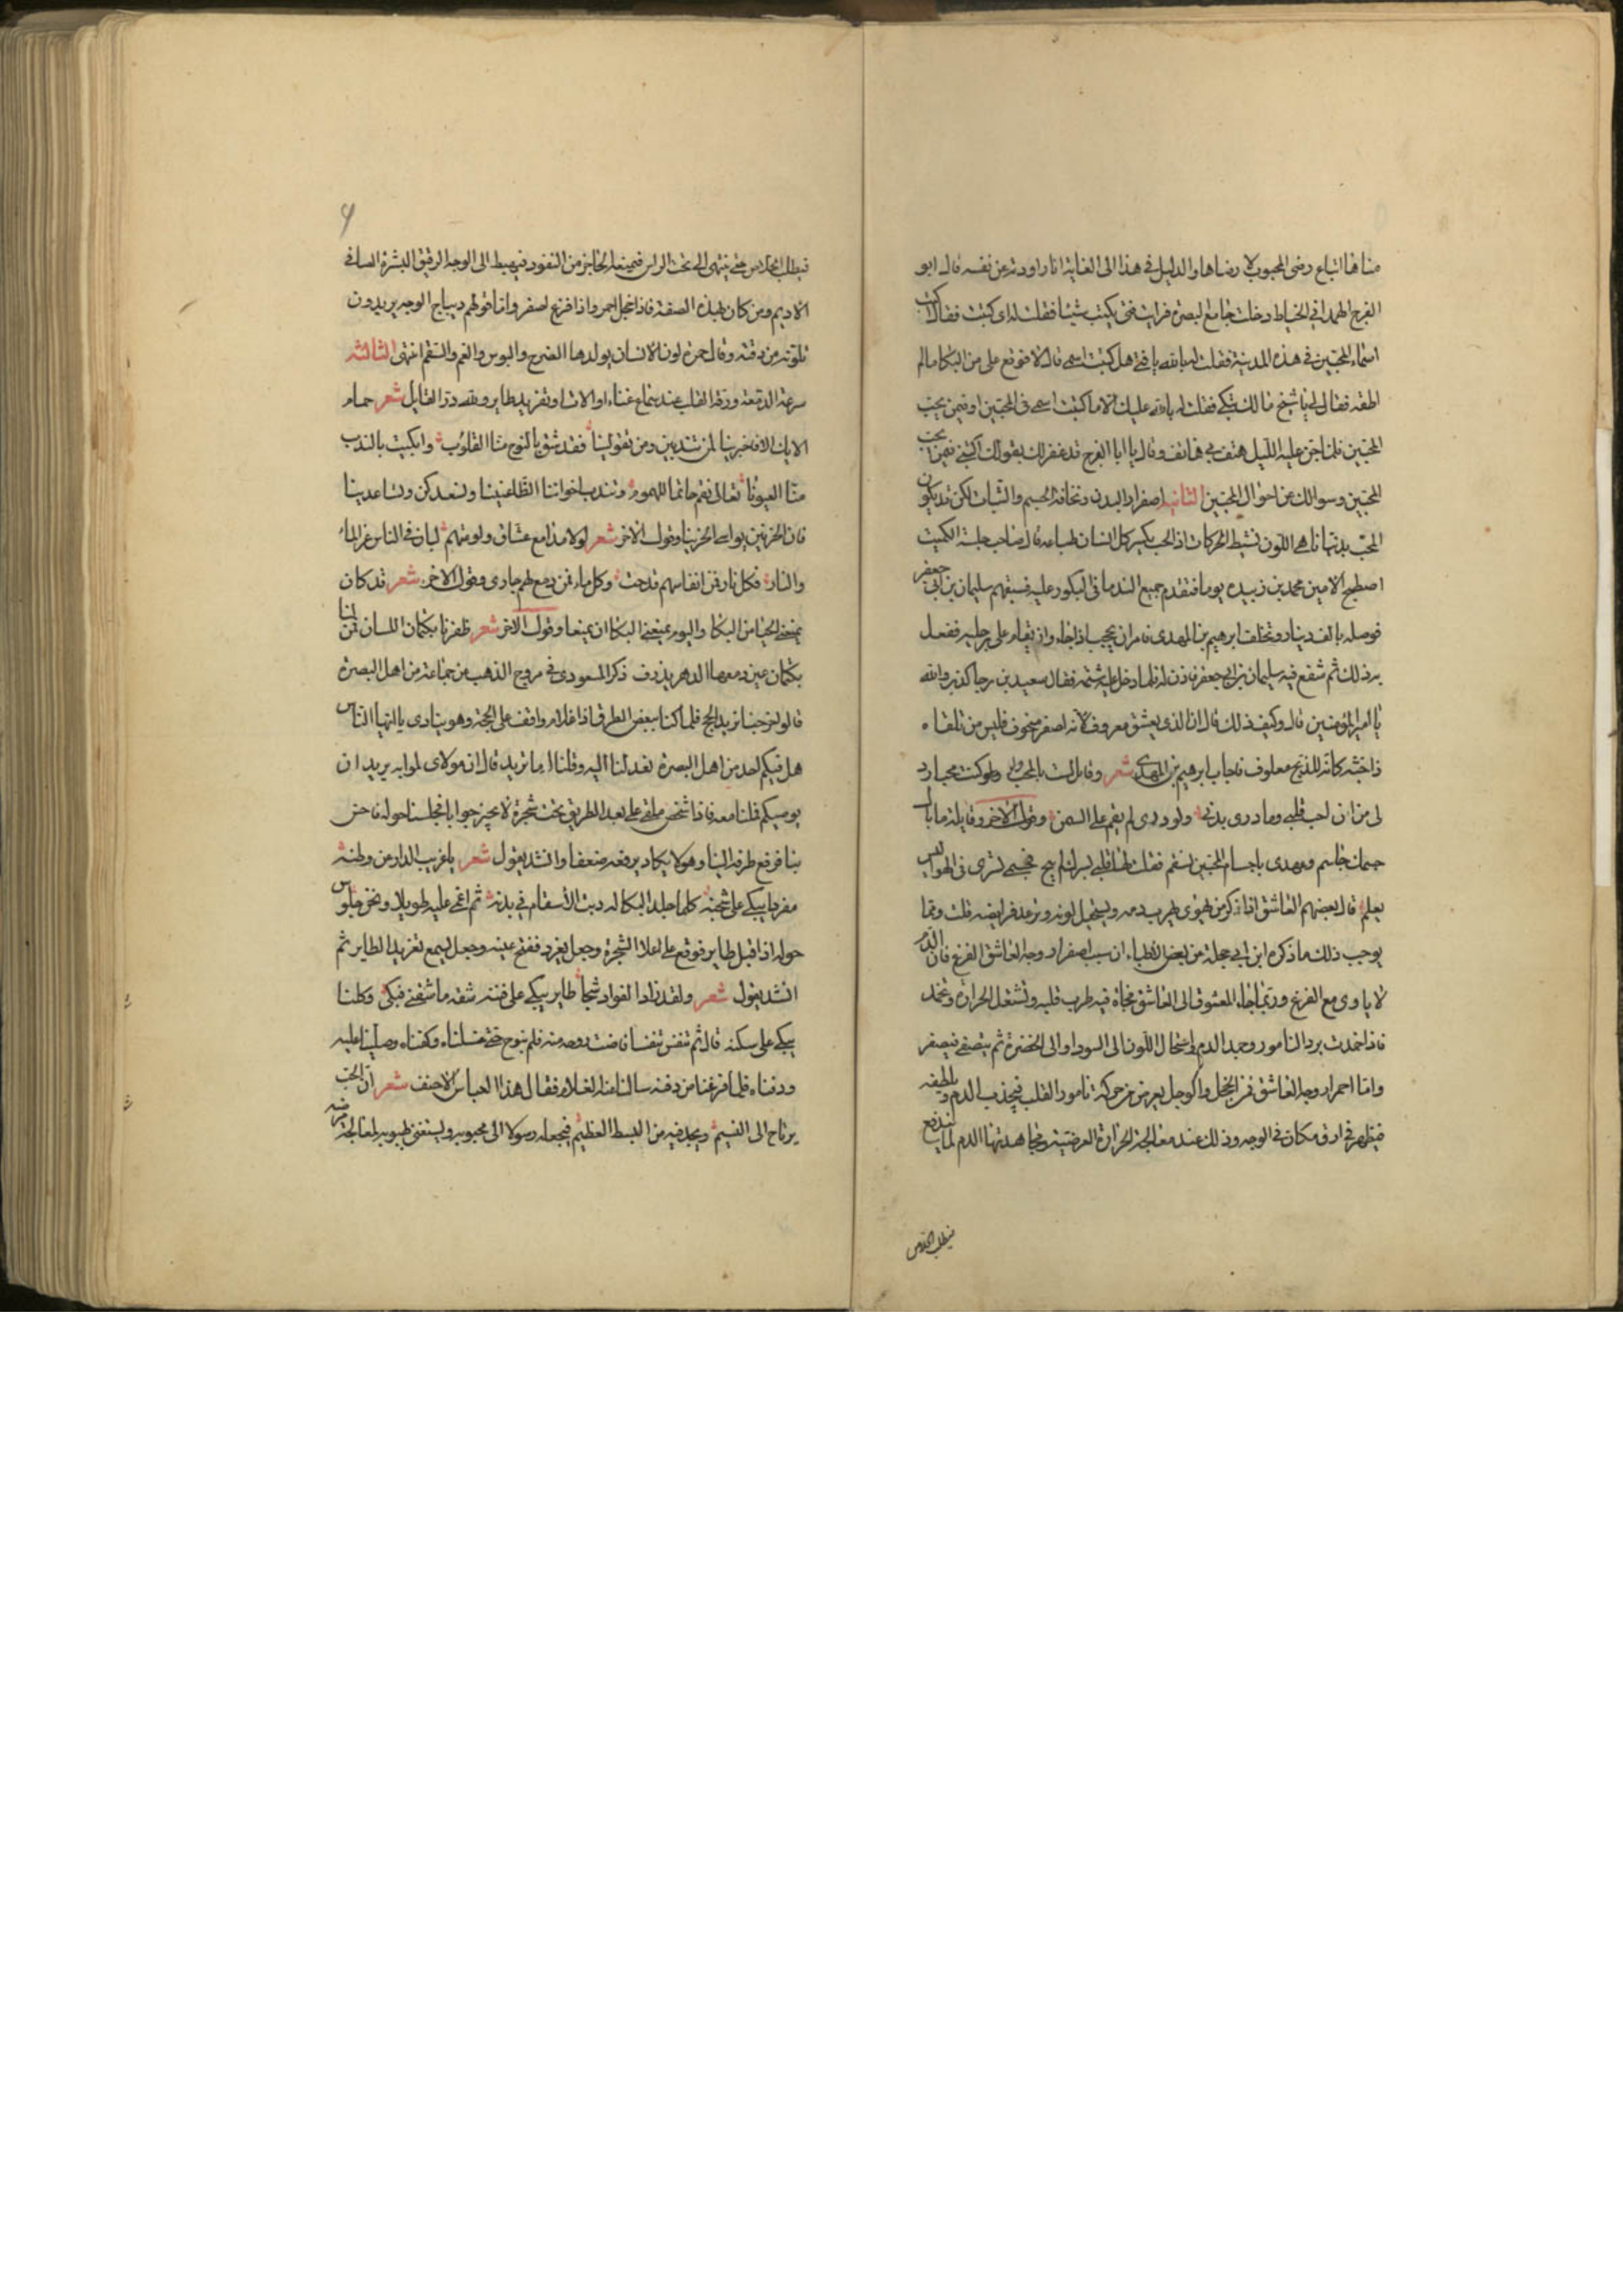 مناها اتباع رضى المحبوب لا رضاها والدليل في هذا الى الغاية انا راودته عن نفسه قال ابو
الفرج الهمداني الخياط دخلت جامع البصرة فرايت فتى يكتب شيئا فقلت له اى كتبت فقال اكتب
اسماء المحبين في هذه المدينة فقلت له بالله يا فتى هل كتبت اسمى قال لا فوقع على من البكا مالم
اطقه فقال لى يا شيخ مالك تبكى فقلت له بالله عليك الا ما كتبت اسمى في المحبين او فيمن يحب
المحبين فلما جن عليه الليل هتف بى هاتف وقال يا ابا الفرج قد غفر لك بقولك اكتبنى فيمن يحب
المحبين وسوالك عن احوال المحبين الثانية اصفرار البدن ونحافة الجسم والثبات لكن قد يكون
المحب بدنها ناهى اللون نشيط الحركات اذ الحب يكسر كل انسان طباعه قال صاحب حلبة الكميت
اصطبح الامين محمد بن زبيدة يوما فتقدم جميع الندما في البكور عليه فسبقهم سليمان بن ابى جعفر
فوصله بالف دينار وتخلف ابرهيم بن المهدى فامر ان يحجب اذا جاء وان يقام على رجليه ففعل
به ذلك ثم شفع فيه سليمان بن ابى جعفر فاذن له فلما دخل عليه شتمه فقال سعيد بن رجا كذب والله
يا امير المؤمنين قال وكيف ذلك قال ان الذى يعشق معروف لانه اصفر منحوف فليس من تلقاه
ذا جثة كانه للذبح معلوف فاجاب ابرهيم بن المهدى شعر وقايل لست بالمحب ولو كنت محبا
لى من ان لحب قلبى وما درى بدنى ولو درى لم يقم على السمن وقول الاخر وقايلة ما بال
جسمك جاسم وعهدى باجسام المحبين تسقم فقلت لها قلبى بسرك لم يبح لجسمى فجسمى في الهوى ليس
يعلم قال بعضهم العاشق اذا ذكر من يهوى هرب دمه ويستحيل لونه وترعد فرايصه قلت ومما
يوجب ذلك ما ذكره ابن ابى حجلة عن بعض الاطباء ان سبب اصفرار وجه العاشق الفزع فان الدم
لا ياوى مع الفزع وربما جاء المعشوق الى العاشق فجاة فيهرب قلبه وتشتعل الحرارة وتخمد
فاذا خمدت برد النامور وجمد الدم واستحال اللون الى السواد او الى الخضرة ثم يتصفى فيصفر
واما احمرار وجه العاشق فمن الخجل والوجل يعرض من حركة نامور القلب فيجذب الدم ولطيفه
فيظهر في ارق مكان في الوجه وذلك عند معالجة الحرارة العرضية ومجاهدتها الدم لما يندفع
فيطلب الخلاص
فيطلب الخلاص حتى ينتهى الى تحت الراس فيمنعه الحاجز من النفود فيهبط الى الوجه الرقيق البشرة الصافى
الاديم ومن كان بهذه الصفة فاذا خجل احمر واذا فزع اصفر واما قولهم ديباج الوجه يريدون
تلونه من رقته وقال حمزة لون الانسان يولدها الضبح والبوس والغم والسقم انتهى الثالثة
سرعة الدمعة ورقة القلب عند سماع غناء او الات او تغريد طاير ولله در القايل شعر حمام
الايك الا فاخبرينا لمن تندبين ومن تعولينا فقد شق بالنوح منا القلوب وابكيت بالندب
منا العيونا تعالى نقم ماتما للهموم وتندب اخواننا الظاعنينا ونسعدكن وتساعدينا
فان الحزين يواسى الحزينا وقول الاخر شعر لولا مدامع عشاق ولوعتهم لبان في الناس عز الماء
والنار فكل نار فمن انفاسهم قدحت وكل ماء فمن دمع لهم جارى وقول الاخر شعر قد كان
يمنعنى الحيا من البكا واليوم يمنعنى البكا ان يمنعا وقول الاخر شعر ظفرنا بكتمان اللسان فمن لنا
بكتمان عين دمعها الدهر يذرف ذكر المسعودى في مروج الذهب عن جماعة من اهل البصرة
قالوا خرجنا نريد الحج فلما كنا ببعض الطرق اذا غلام واقف على المحجة وهو ينادى يا ايها الناس
هل فيكم احد من اهل البصرة فعدلنا اليه وقلنا له ما تريد قال ان مولاى لما به يريد ان
يوصيكم قلنا معه فاذا شخص ملقى على بعد الطريق تحت شجرة لا يحير جوابا فجلسنا حوله فاحس
بنا فرفع طرفه الينا وهو لا يكاد يرفعه ضعفا وانشد يقول شعر يا غريب الدار عن وطنه
مفردا يبكى على شجنه كلما جد البكا له دبت الاسقام في بدنه ثم اغمى عليه طويلا ونحن جلوس
حوله اذ اقبل طاير فوقع على اعلا الشجرة وجعل يغرد ففتح عينيه وجعل يسمع تغريد الطاير ثم
انشد يقول شعر ولقد زاد الفواد شجا طاير يبكى على فننه شفه ما شفنى فبكى وكلنا
يبكى على سكنه قال ثم تنفس تنفسا فاضت روحه منه فلم نبرح حتى غسلناه وكفناه وصلينا عليه
ودفناه فلما فرغنا من دفنه سالنا عنه الغلام فقال هذا العباس الاحنف شعر ان المحب
يرتاح الى النسيم ويجد فيه من البسط العظيم فيجعله رسولا الى محبوبه ويستغنى بطبوبه لمعالجة مرضه